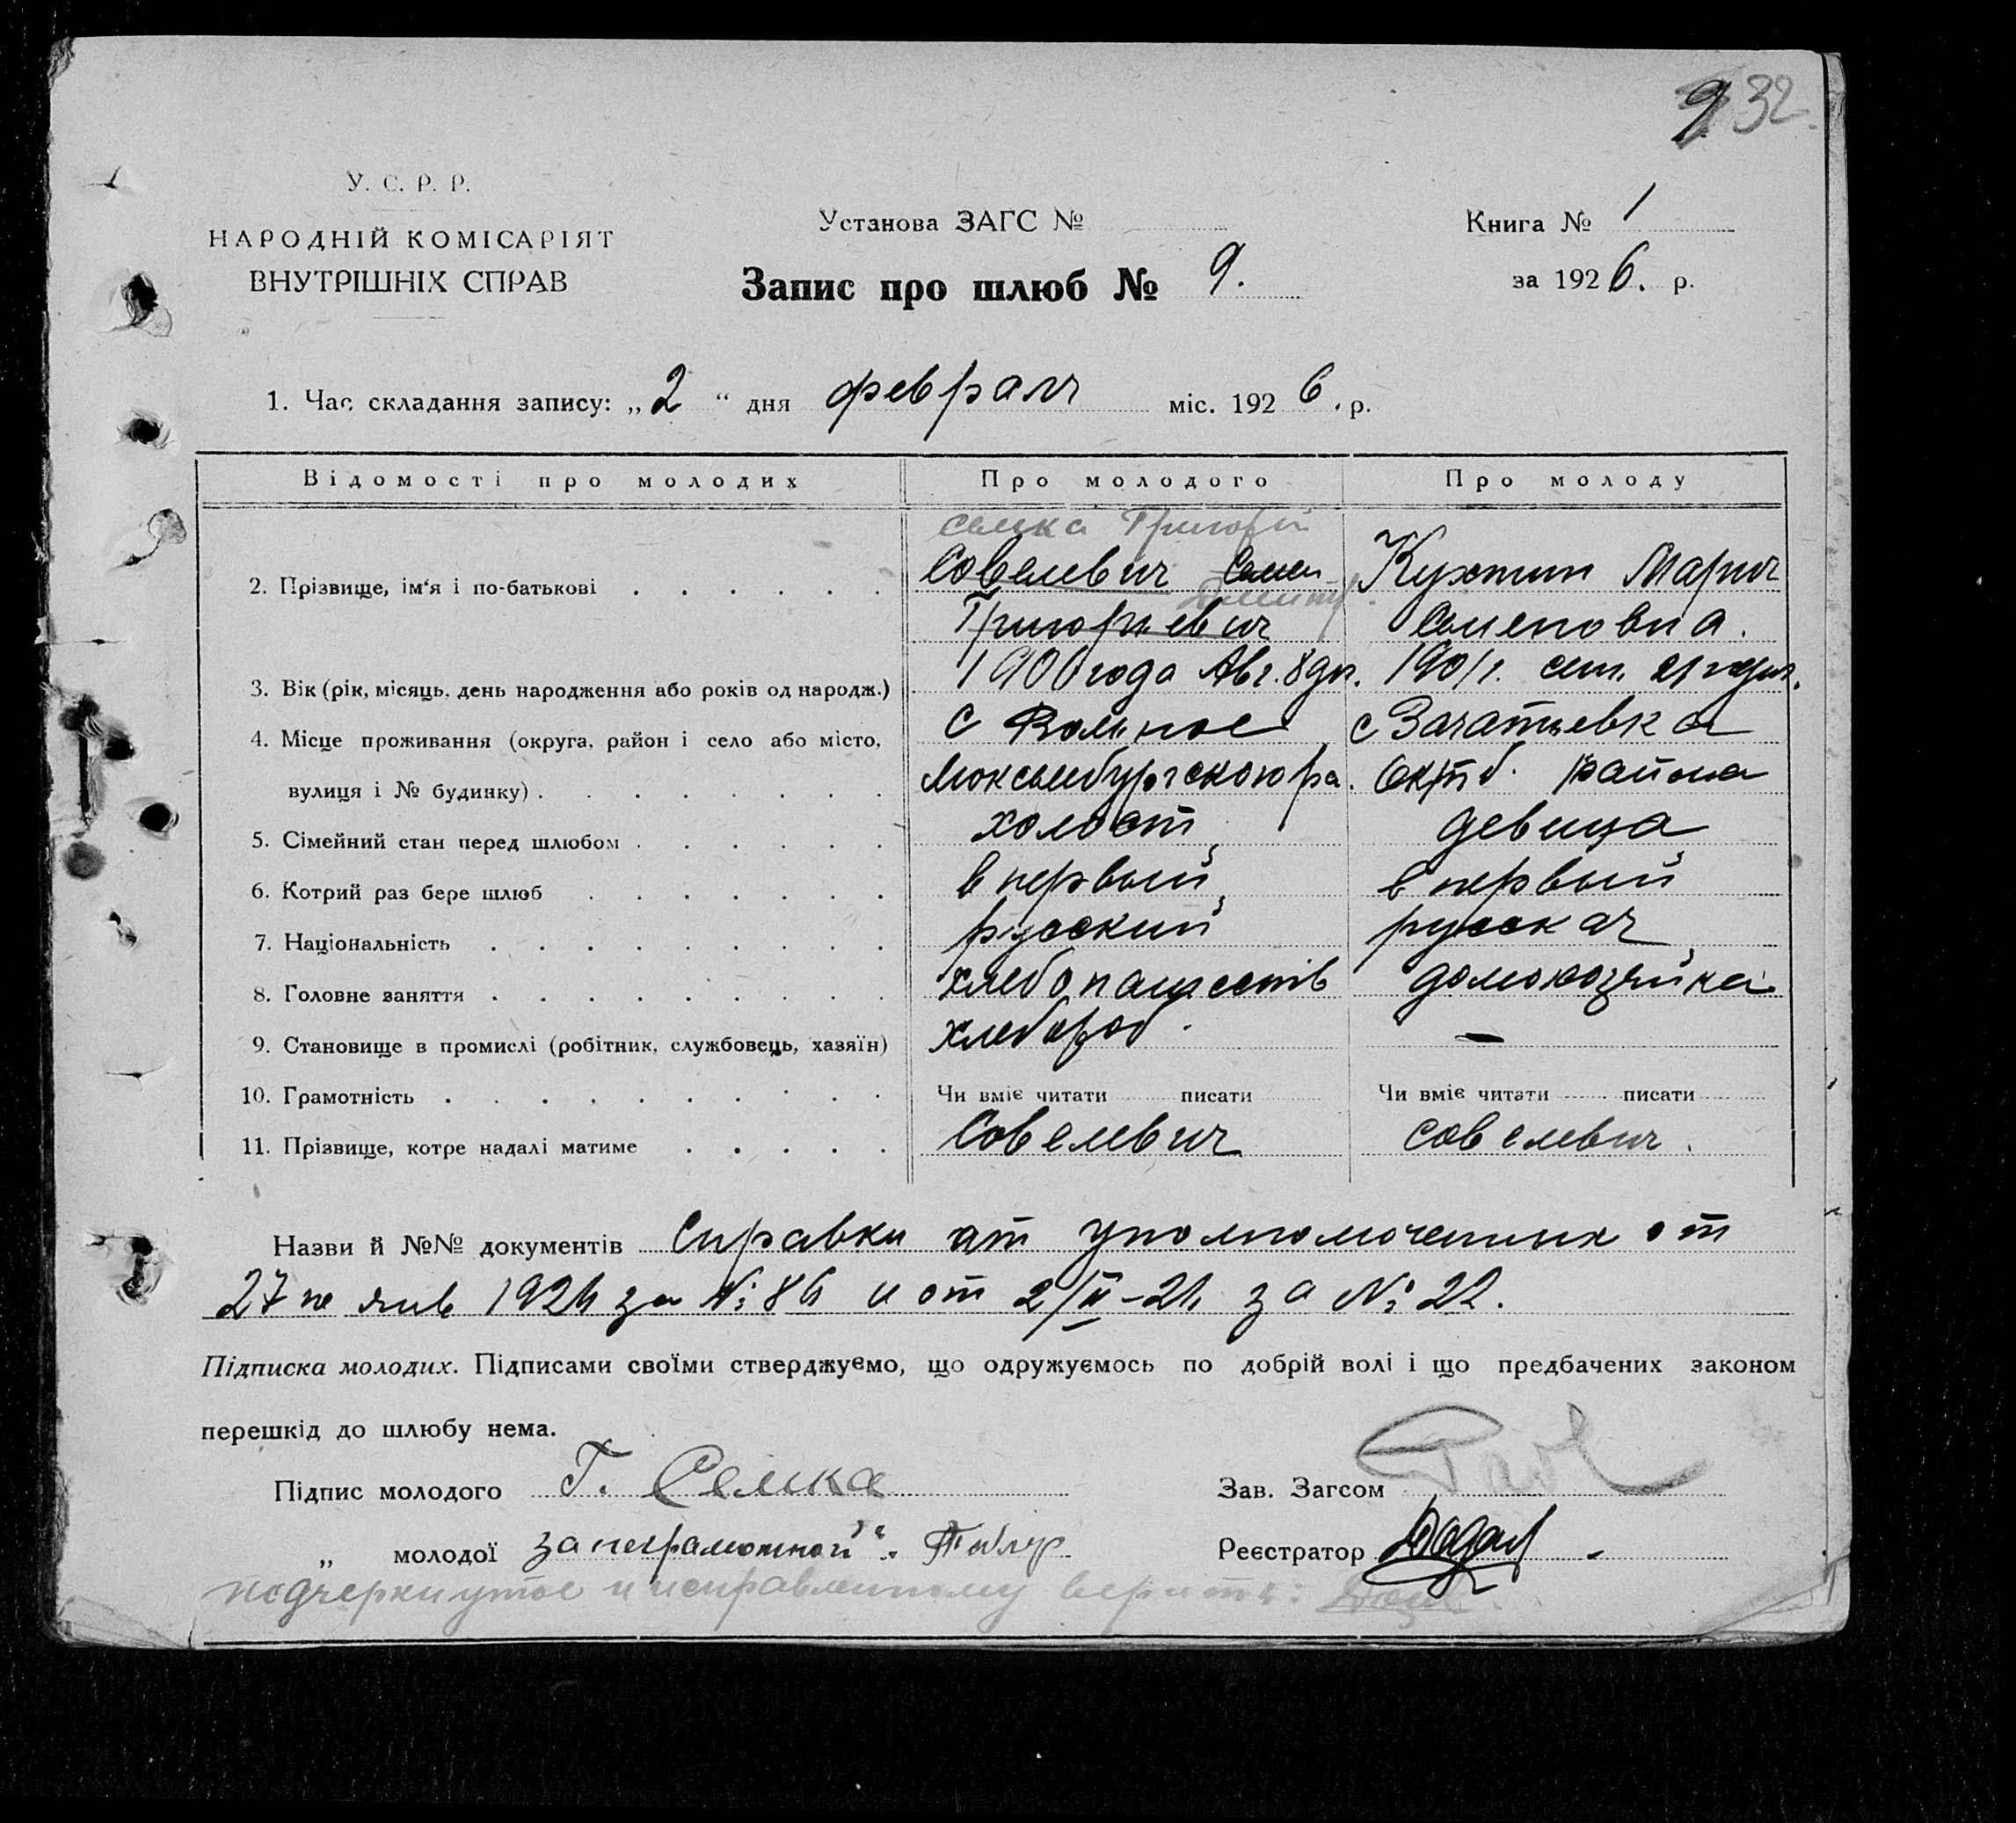 9 32
У. С. Р. Р.
НАРОДНІЙ КОМІСАРІЯТ
ВНУТРІШНІХ СПРАВ
Установа ЗАГС №
Книга № 1
Запис про шлюб № 9.
за 1926. р.
1. Час складання запису: „2“ дня февраля міс. 1926. р.
Відомості про молодих Про молодого Про молоду
Семка Григорий
2. Прізвище, ім‘я і по-батькові Совелевич Семен Кухтин Мария
Григорьевич Семеновна.
3. Вік (рік, місяць, день народження або років од народж.) 1900 года Авг. 8 дня. 1901 г. сен.
4. Місце проживання (округа, район і село або місто, с Вольное с Зачатьевка
вулиця і № будинку) Люксембургского ра. Октб. района
5. Сімейний стан перед шлюбом холост девица
6. Котрий раз бере шлюб в первый в первый
7. Національність русский русская
8. Головне заняття хлебопашеств домохозяйка
9. Становище в промислі (робітник, службовець, хазяїн) хлебороб. —
10. Грамотність Чи вміє читати писати Чи вміє читати писати
11. Прізвище, котре надалі матиме Совелевич Совелевич.
Назви й №№ документів Справки от уполномоченных от
27 го янв 1926 за №: 86 и от 2/II-26 за №: 22.
Підписка молодих. Підписами своїми стверджуємо, що одружуємось по добрій волі і що предбачених законом
перешкід до шлюбу нема.
Підпис молодого Г. Семка Зав. Загсом
„ молодої за неграмотной Реєстратор
подчеркнутое и исправленному верить: